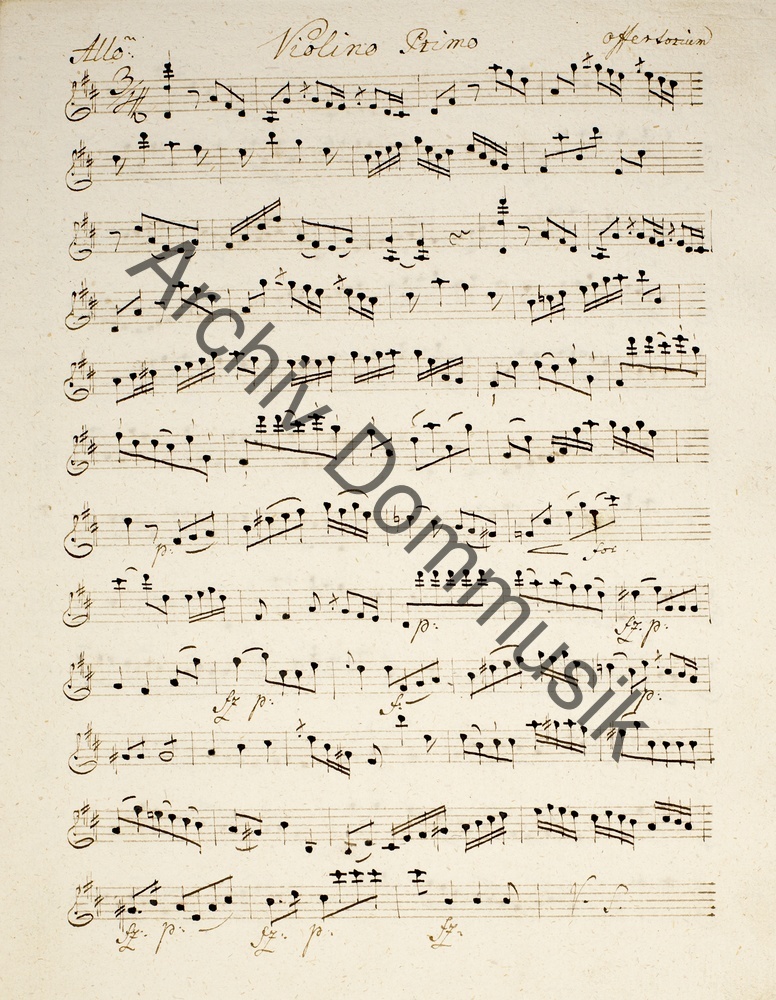 Allo: Violino Primo offertorium
3/4
p: for
p: fz. p:
fz p: f: p:
fz: p: fz: p: fz:
V. S.
Archiv Dommusik